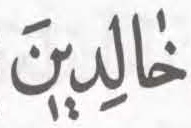 خٰالِدٖينَ